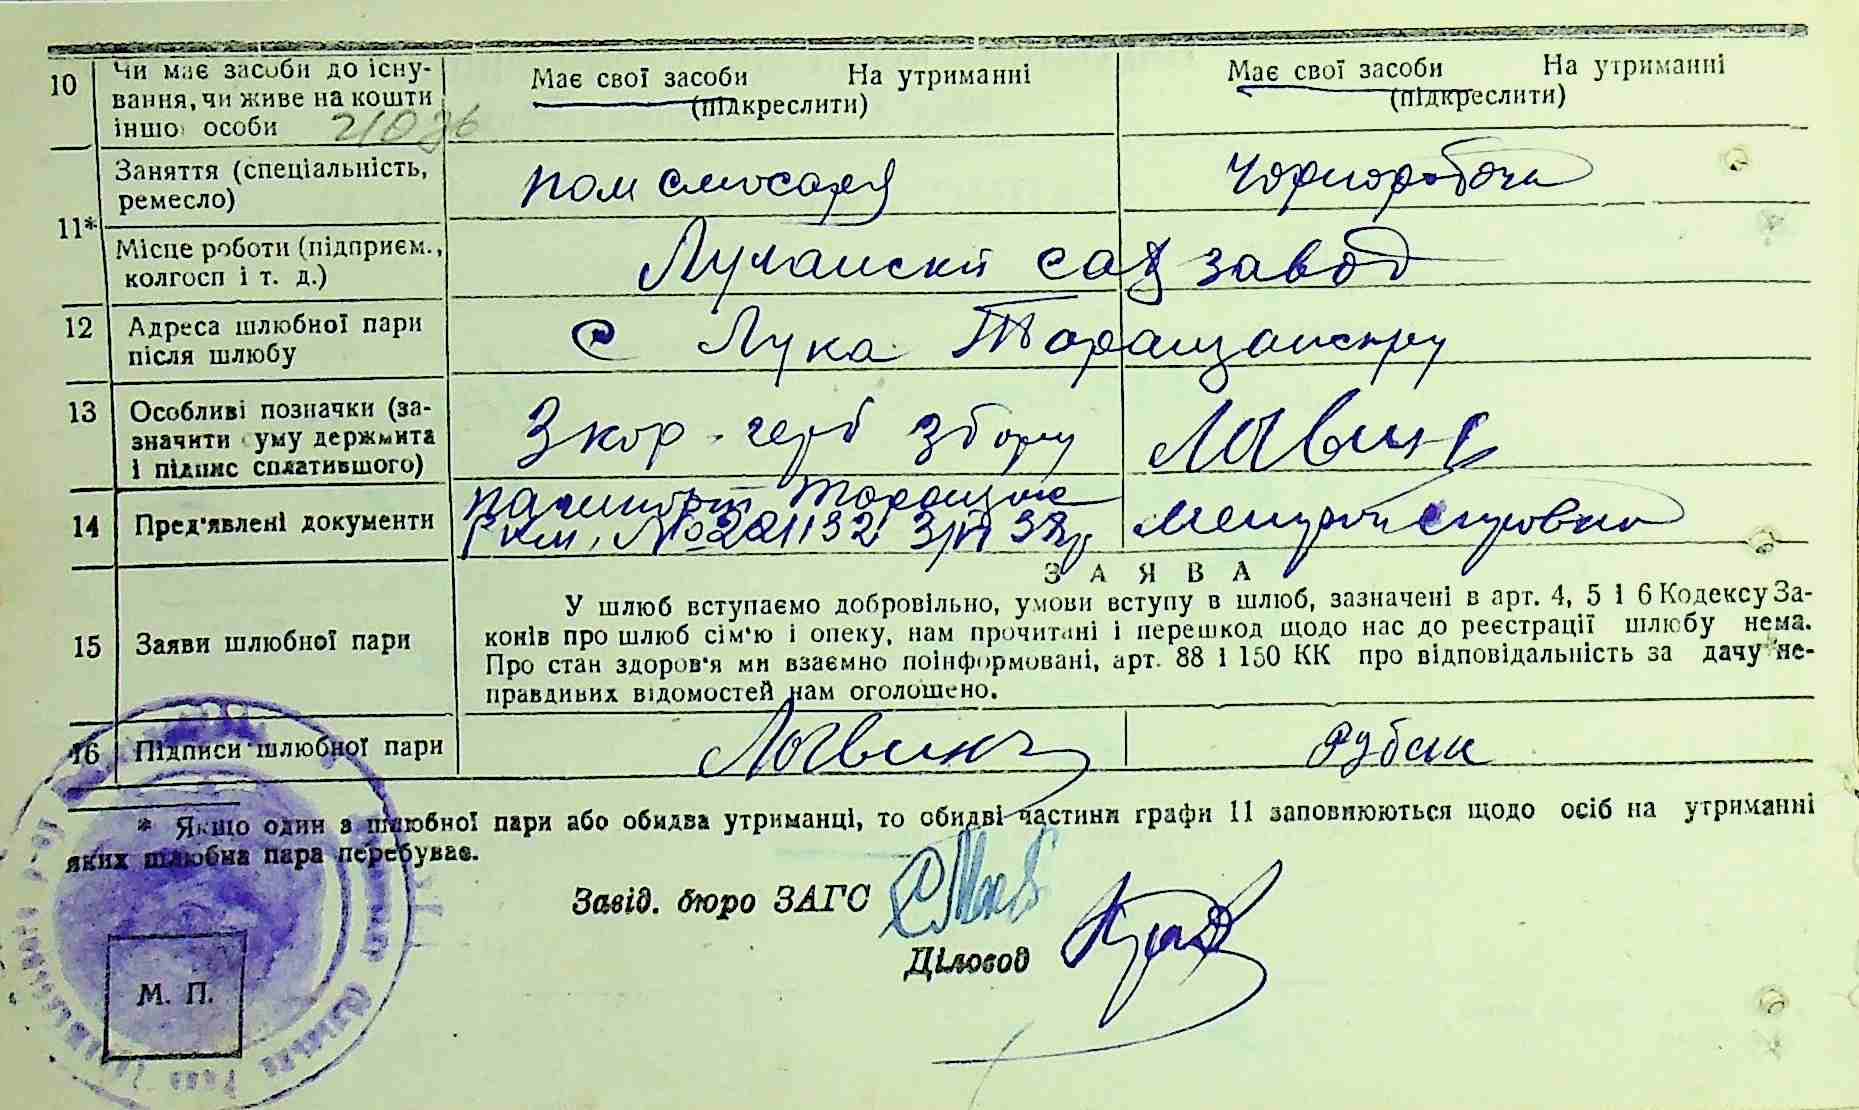 10 Чи має засоби до існування, чи живе на кошти іншої особи
Має свої засоби На утриманні
(підкреслити)
Має свої засоби На утриманні
(підкреслити)
11*
Заняття (спеціальність, ремесло)
пом слюсаря
чорноробоча
Місце роботи (підприєм., колгосп і т. д.)
Лучанский сах завод
12 Адреса шлюбної пари після шлюбу
с Лука Таращанс рну
13 Особливі позначки (зазначити суму держмита і підпис сплатившого)
3 кор. герб збору
Логвин
14 Пред'явлені документи
пашпорт Таращанс
РКМ, № 221132
15 Заяви шлюбної пари
ЗАЯВА
У шлюб вступаємо добровільно, умови вступу в шлюб, зазначені в арт. 4, 5 і 6 Кодексу За-
конів про шлюб сім'ю і опеку, нам прочитані і перешкод щодо нас до реєстрації шлюбу нема.
Про стан здоров'я ми взаємно поінформовані, арт. 88 і 150 КК про відповідальність за дачу не-
правдивих відомостей нам оголошено.
16 Підписи шлюбної пари
Логвин
Рубан
* Якщо один з шлюбної пари або обидва утриманці, то обидві частини графи 11 заповнюються щодо осіб на утриманні
яких шлюбна пара перебуває.
Завід. бюро ЗАГС
Діловод
М. П.